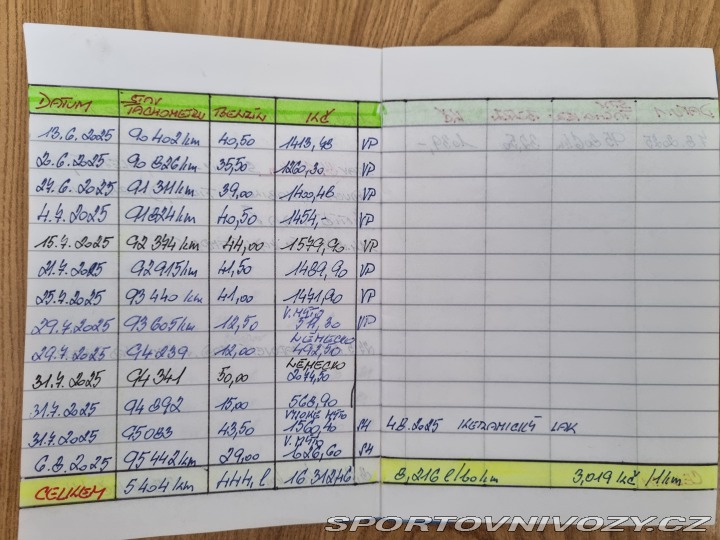 DATUM STAV TACHOMETRU BENZÍN KČ
13.6.2025 90 402 km 40,50 1413,48 VP
2.6.2025 90 826 km 35,50 1260,30 VP
27.6.2025 91 341 km 39,00 1400,48 VP
4.7.2025 91824 km 40,50 1454,- VP
15.7.2025 92 374 km 44,00 1579,90 VP
21.7.2025 92915 km 41,50 1489,90 VP
25.7.2025 93 440 km 41,00 1471,90 VP
29.7.2025 93605 km 12,50 V. MÝTO 511,30 VP
29.7.2025 94239 12,00 NĚMECKO 492,50
31.7.2025 94341 50,00 NĚMECKO 2074,20
31.7.2025 94 892 15,00 568,90
31.7.2025 95083 43,50 VYSOKÉ MÝTO 1560,40
4.8.2025 KERAMICKÝ LAK
6.8.2025 95442 km 29,00 V. MÝTO 1626,60
CELKEM 5404 km 444, l 16312,46 8,216 l/100km 3,019 Kč /1km
SPORTOVNIVOZY.CZ